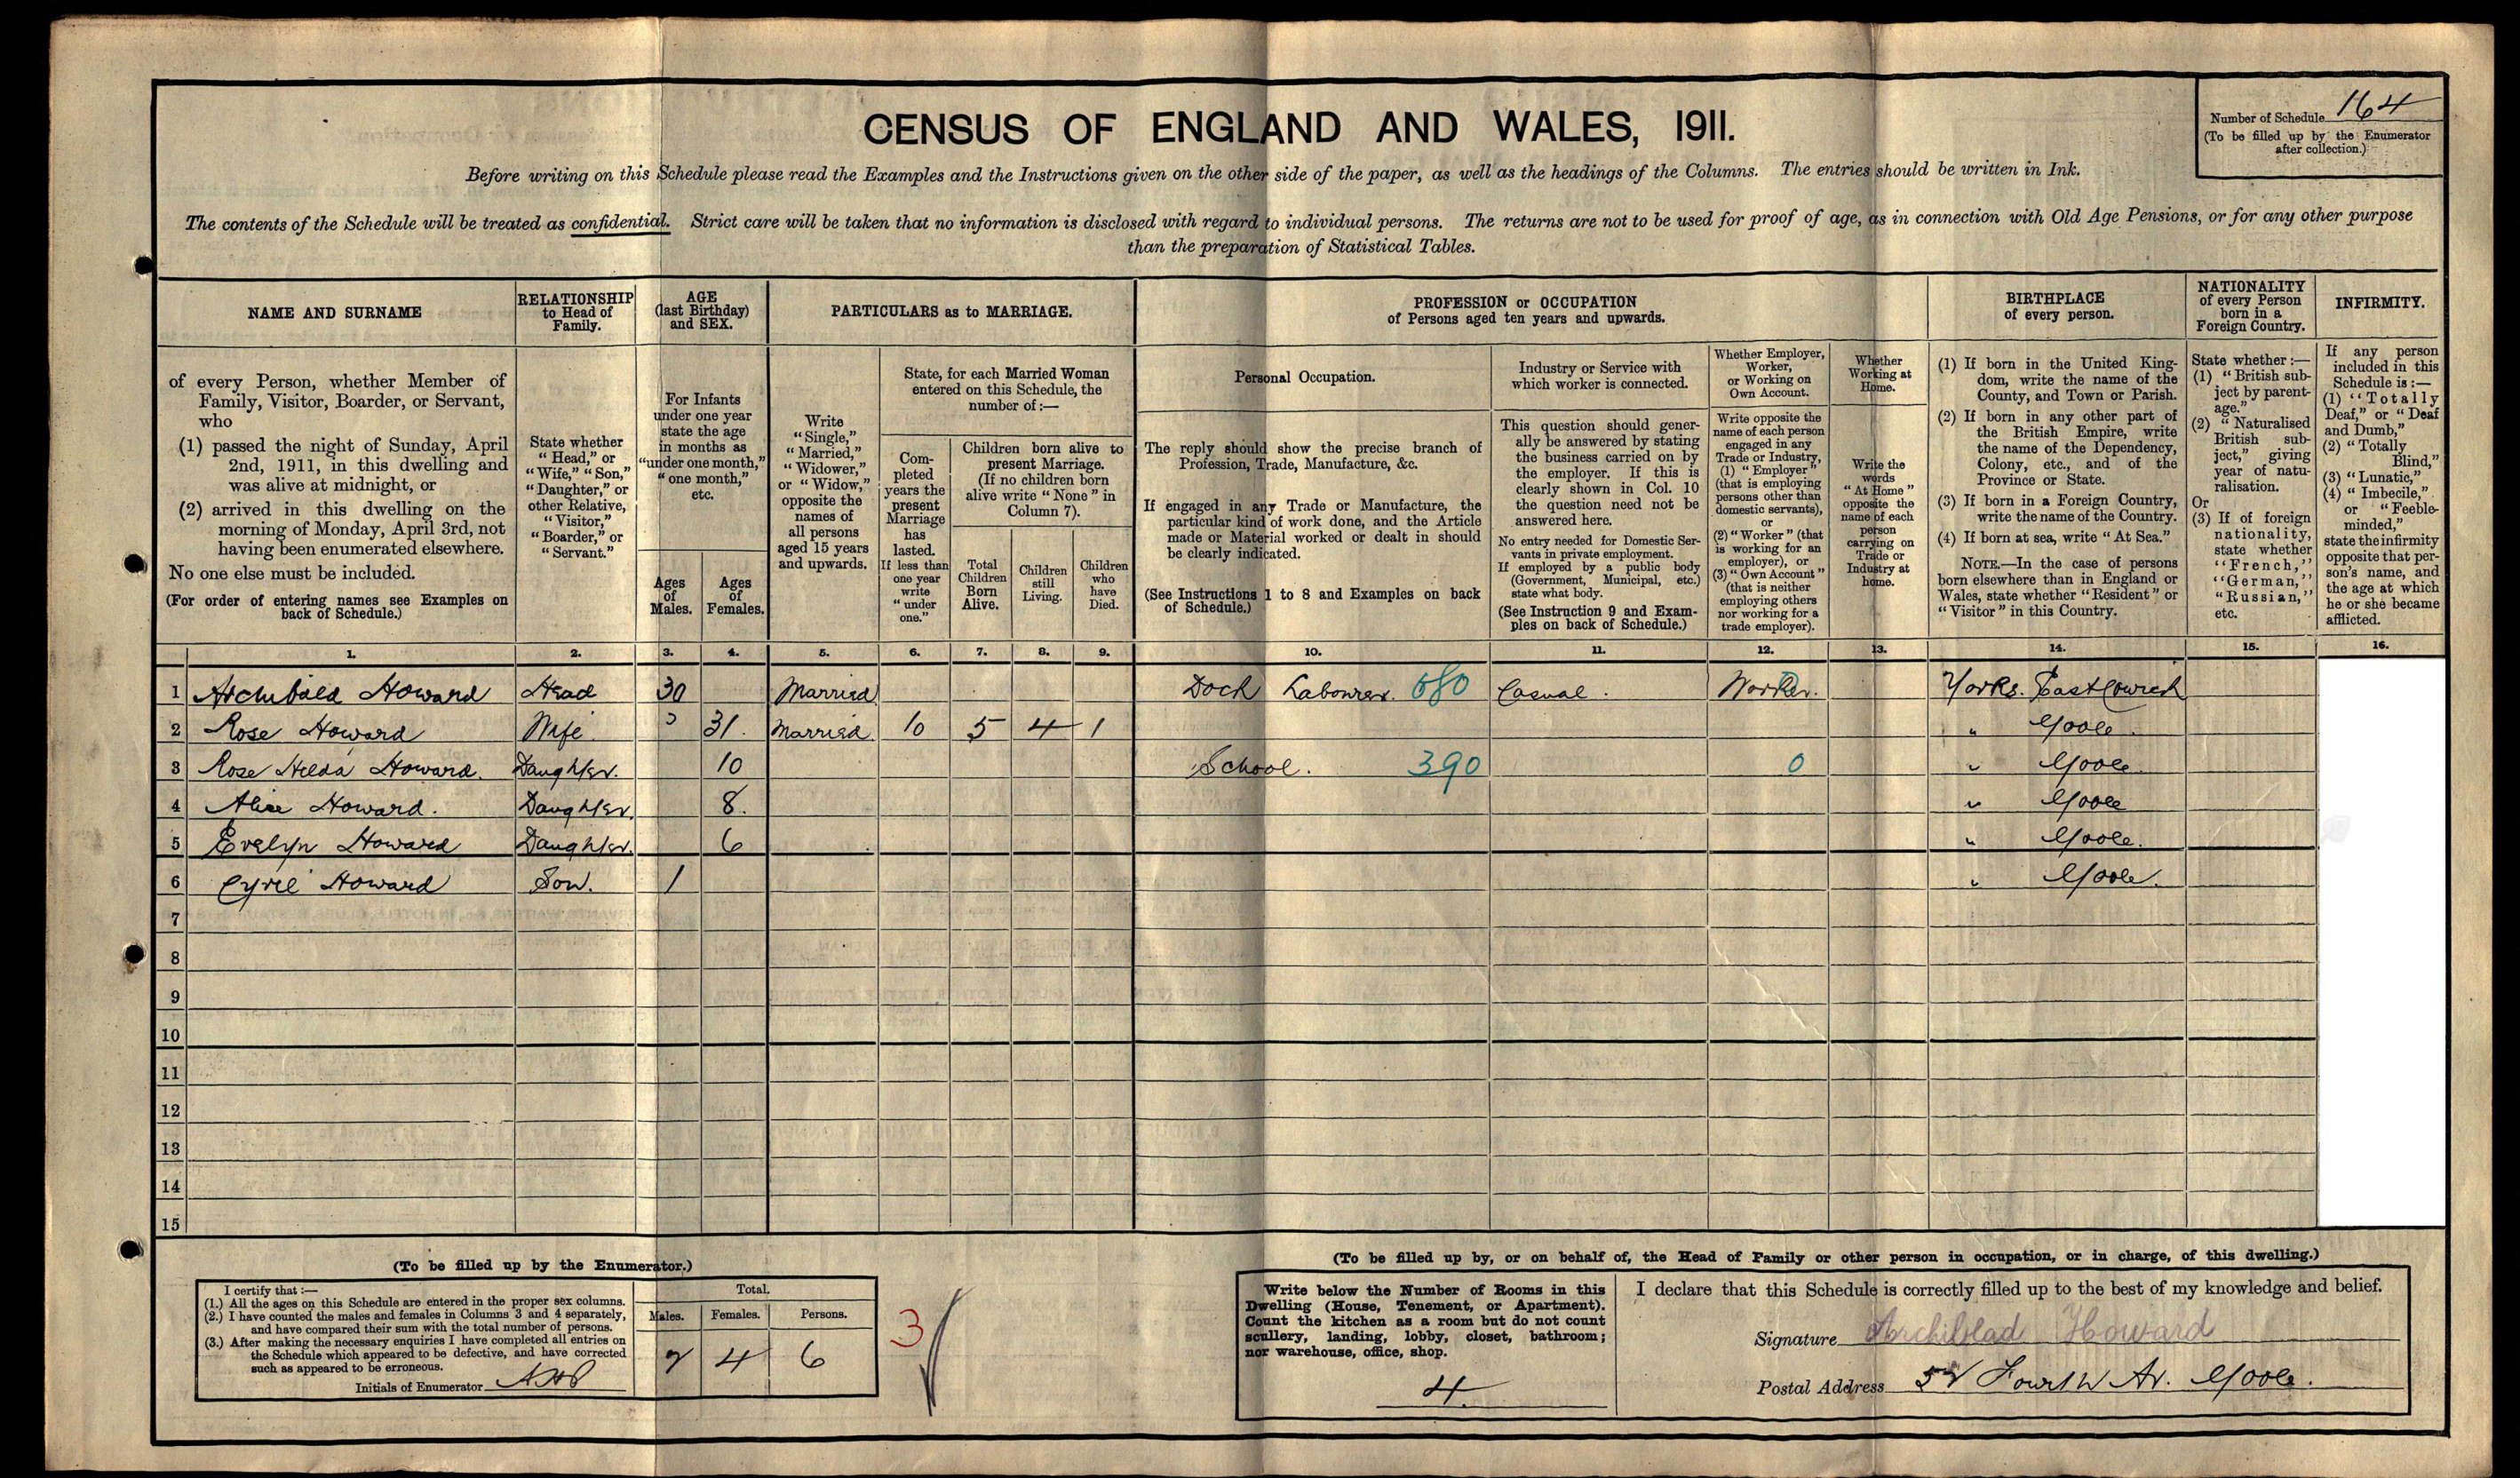 CENSUS OF ENGLAND AND WALES, 1911.
Number of Schedule 164
(To be filled up by the Enumerator
after collection.)
Before writing on this Schedule please read the Examples and the Instructions given on the other side of the paper, as well as the headings of the Columns. The entries should be written in Ink.
The contents of the Schedule will be treated as confidential. Strict care will be taken that no information is disclosed with regard to individual persons. The returns are not to be used for proof of age, as in connection with Old Age Pensions, or for any other purpose
than the preparation of Statistical Tables.
NAME AND SURNAME
of every Person, whether Member of
Family, Visitor, Boarder, or Servant,
who
(1) passed the night of Sunday, April
2nd, 1911, in this dwelling and
was alive at midnight, or
(2) arrived in this dwelling on the
morning of Monday, April 3rd, not
having been enumerated elsewhere.
No one else must be included.
(For order of entering names see Examples on
back of Schedule.)
RELATIONSHIP
to Head of
Family.
State whether
"Head," or
"Wife," "Son,"
"Daughter," or
other Relative,
"Visitor,"
"Boarder," or
"Servant."
AGE
(last Birthday)
and SEX.
For Infants
under one year
state the age
in months as
"under one month,"
"one month,"
etc.
Ages
of
Males.
Ages
of
Females.
PARTICULARS as to MARRIAGE.
Write
"Single,"
"Married,"
"Widower,"
or "Widow,"
opposite the
names of
all persons
aged 15 years
and upwards.
State, for each Married Woman
entered on this Schedule, the
number of:—
Com-
pleted
years the
present
Marriage
has
lasted.
If less than
one year
write
"under
one."
Children born alive to
present Marriage.
(If no children born
alive write "None" in
Column 7).
Total
Children
Born
Alive.
Children
still
Living.
Children
who
have
Died.
PROFESSION or OCCUPATION
of Persons aged ten years and upwards.
Personal Occupation.
The reply should show the precise branch of
Profession, Trade, Manufacture, &c.
If engaged in any Trade or Manufacture, the
particular kind of work done, and the Article
made or Material worked or dealt in should
be clearly indicated.
(See Instructions 1 to 8 and Examples on back
of Schedule.)
Industry or Service with
which worker is connected.
This question should gener-
ally be answered by stating
the business carried on by
the employer. If this is
clearly shown in Col. 10
the question need not be
answered here.
No entry needed for Domestic Ser-
vants in private employment.
If employed by a public body
(Government, Municipal, etc.)
state what body.
(See Instruction 9 and Exam-
ples on back of Schedule.)
Whether Employer,
Worker,
or Working on
Own Account.
Write opposite the
name of each person
engaged in any
Trade or Industry,
(1) "Employer"
(that is employing
persons other than
domestic servants),
or
(2) "Worker" (that
is working for an
employer), or
(3) "Own Account"
(that is neither
employing others
nor working for a
trade employer).
Whether
Working at
Home.
Write the
words
"At Home"
opposite the
name of each
person
carrying on
Trade or
Industry at
home.
BIRTHPLACE
of every person.
(1) If born in the United King-
dom, write the name of the
County, and Town or Parish.
(2) If born in any other part of
the British Empire, write
the name of the Dependency,
Colony, etc., and of the
Province or State.
(3) If born in a Foreign Country,
write the name of the Country.
(4) If born at sea, write "At Sea."
NOTE.—In the case of persons
born elsewhere than in England or
Wales, state whether "Resident" or
"Visitor" in this Country.
NATIONALITY
of every Person
born in a
Foreign Country.
State whether:—
(1) "British sub-
ject by parent-
age."
(2) "Naturalised
British sub-
ject," giving
year of natu-
ralisation.
Or
(3) If of foreign
nationality,
state whether
"French,"
"German,"
"Russian,"
etc.
INFIRMITY.
If any person
included in this
Schedule is:—
(1) "Totally
Deaf," or "Deaf
and Dumb,"
(2) "Totally
Blind,"
(3) "Lunatic,"
(4) "Imbecile,"
or "Feeble-
minded,"
state the infirmity
opposite that per-
son's name, and
the age at which
he or she became
afflicted.
1. 2. 3. 4. 5. 6. 7. 8. 9. 10. 11. 12. 13. 14. 15. 16.
1 Archibald Howard Head 30 Married Dock Labourer. 680 Casual. Worker. Yorks. East Cowick
2 Rose Howard Wife 31. Married 10 5 4 1 " Goole.
3 Rose Hilda Howard. Daughter. 10 School. 390 0 " Goole.
4 Alice Howard. Daughter. 8. " Goole
5 Evelyn Howard Daughter. 6 " Goole.
6 Cyril Howard Son. 1 " Goole.
7
8
9
10
11
12
13
14
15
(To be filled up by the Enumerator.)
I certify that:—
(1.) All the ages on this Schedule are entered in the proper sex columns.
(2.) I have counted the males and females in Columns 3 and 4 separately,
and have compared their sum with the total number of persons.
(3.) After making the necessary enquiries I have completed all entries on
the Schedule which appeared to be defective, and have corrected
such as appeared to be erroneous.
Initials of Enumerator
Total.
Males. Females. Persons.
2 4 6
3
(To be filled up by, or on behalf of, the Head of Family or other person in occupation, or in charge, of this dwelling.)
Write below the Number of Rooms in this
Dwelling (House, Tenement, or Apartment).
Count the kitchen as a room but do not count
scullery, landing, lobby, closet, bathroom;
nor warehouse, office, shop.
4.
I declare that this Schedule is correctly filled up to the best of my knowledge and belief.
Signature Archiblad Howard
Postal Address 52 Fourth Av. Goole.